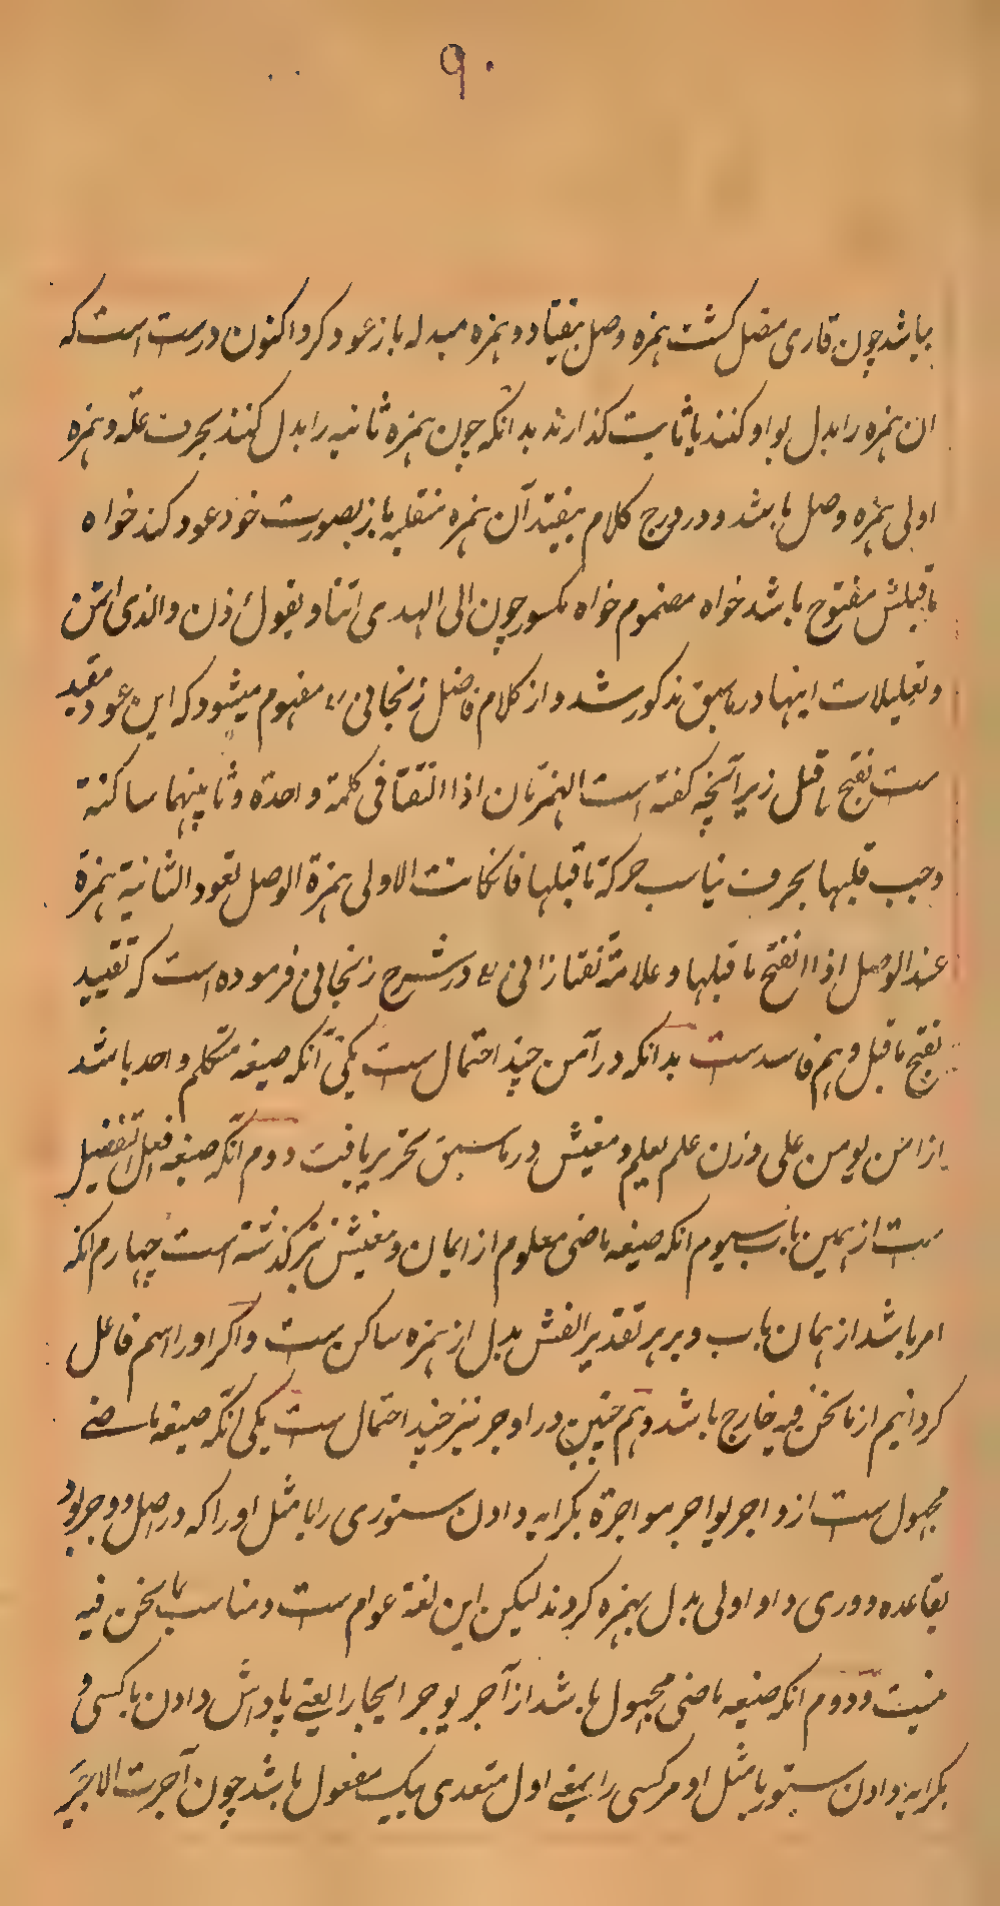 ۹۰
بباشد چون قاری متصل گشت همزه وصل بیفتاد و همزه مبدله باز عود کرد اکنون درست است که
ان همزه را بدل بواو کنند یا ثابت گذارند بدانکه چون همزه ثانیه را بدل کنند بحرف علّه و همزه
اولی همزه وصل باشد و در درج کلام بیفتد آن همزه منقلبه باز بصورت خود عود کند خواه
ماقبلش مفتوح باشد خواه مضموم خواه مکسور چون الی الهدی ائتنا و یقول ائذن والذی اؤتمن
و تعلیلات اینها در ماسبق مذکور شد و از کلام فاضل زنجانی مفهوم میشود که این عود مقید
ست بفتح ماقبل زیرا آنچه گفته است الهمزتان اذا التقتا فی کلمة واحدة و ثانیتهما ساکنة
وجب قلبها بحرف یناسب حرکة ماقبلها فان کانت الاولی همزة الوصل تعود الثانیة همزة
عند الوصل اذا انفتح ماقبلها و علامة تفتازانی در شرح زنجانی فرموده است که تقیید
بفتح ماقبل وهم فاسد ست بدانکه در آمن چند احتمال ست یکی آنکه صیغه متکلم واحد باشد
از امن یومن علی وزن علم یعلم و معنیش در ماسبق تحریر یافت دوم آنکه صیغه افعل التفضیل
ست از همین باب سیوم انکه صیغه ماضی معلوم از ایمان و معنیش نیز گذشته است چهارم انکه
امر باشد از همان باب و بر هر تقدیر الفش بدل از همزه ساکن ست و اگر او را اسم فاعل
گردانیم از مانحن فیه خارج باشد و هم چنین در اوجر نیز چند احتمال ست یکی انکه صیغه ماضی
مجهول ست از واجر یواجر مواجرة بکرایه دادن ستوری را با مثل او را که در اصل ووجر بود
بقاعده ووری واو اولی بدل بهمزه کردند لیکن این لغة عوام ست و مناسب بما نحن فیه
نیست و دوم انکه صیغه ماضی مجهول باشد از آجر یوجر ایجارا یعنی پاداش دادن با کسی و
بکرایه دادن ستور یا مثل او مر کسی را بمعنی اول متعدی بیک مفعول باشد چون آجرت الاجیر